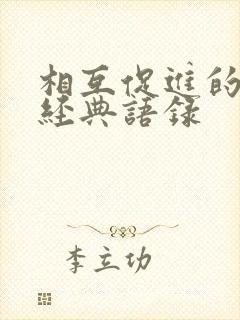 相互促進的
經典語錄
李立功